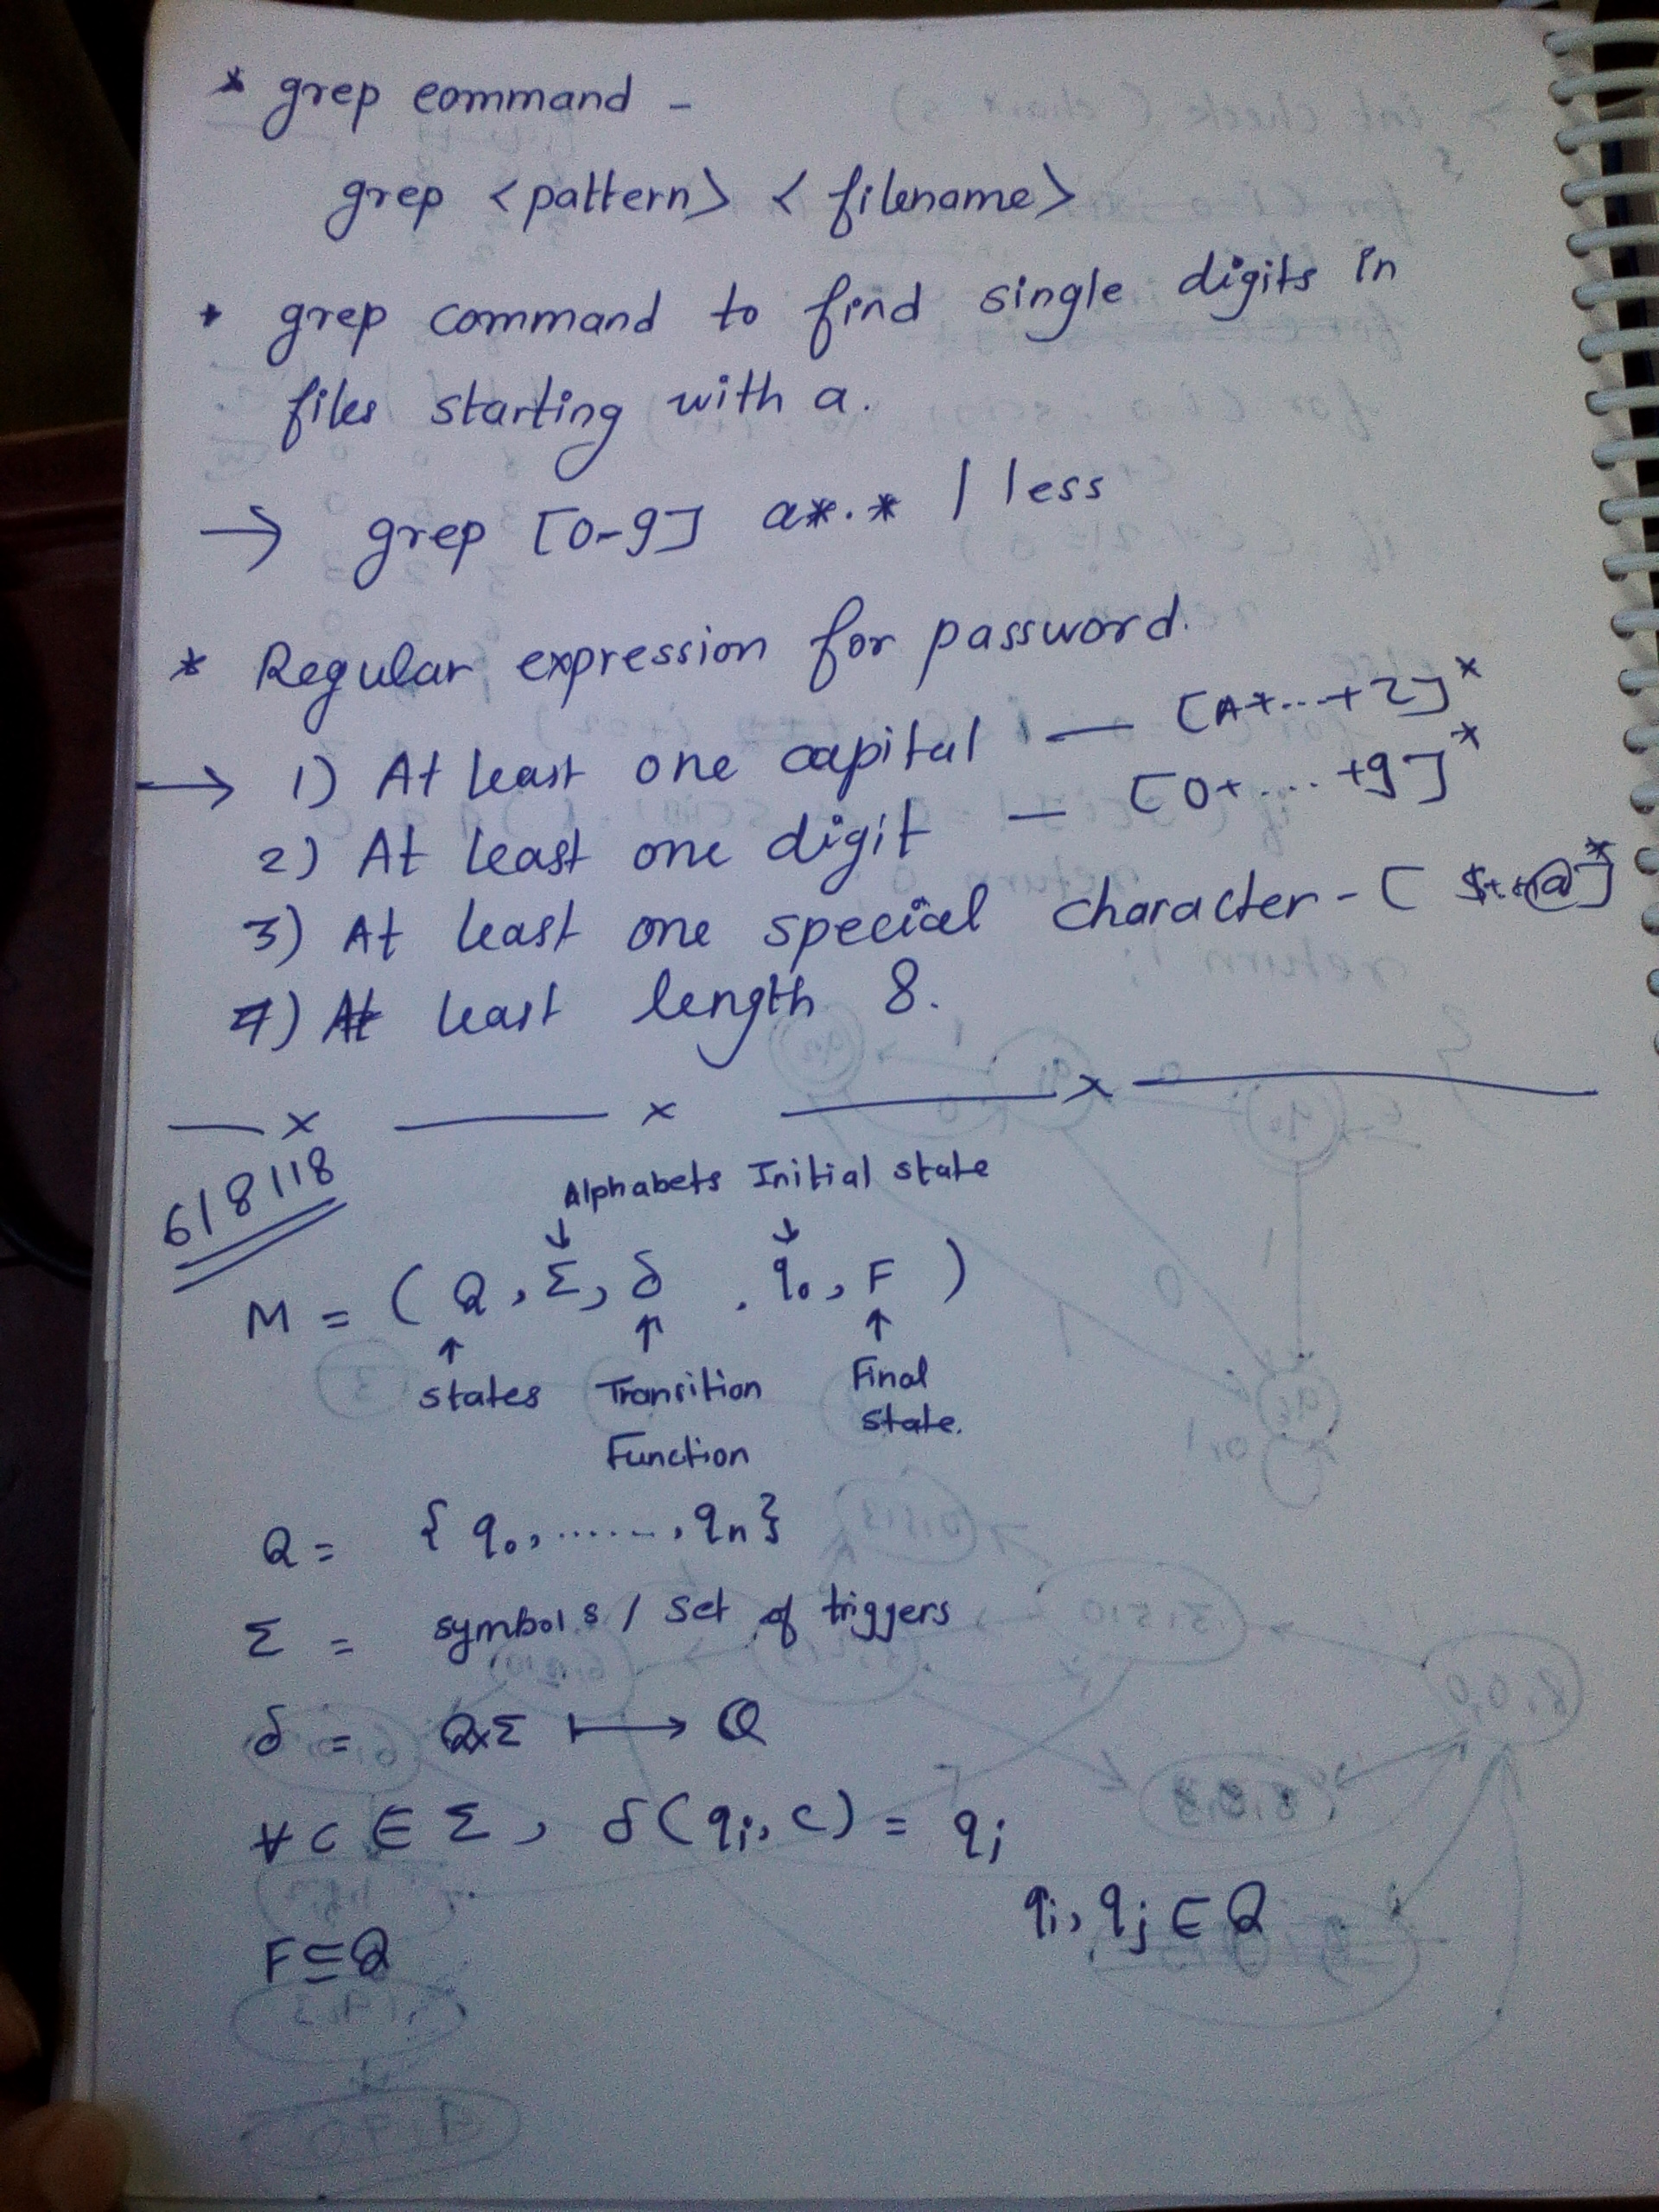 * grep command -
grep <pattern> < filename>
* grep command to find single digits in
files starting with a.
→ grep [0-9] a*.* | less
* Regular expression for password.
→ 1) At least one capital — [A+...+Z]*
2) At least one digit — [0+....+9]*
3) At least one special character - [ $+..+@]*
4) At least length 8.
— x — x — x —
6/8/18
Alphabets Initial state
↓ ↓
M = ( Q, Σ, δ , q₀, F )
↑ ↑ ↑
states Transition Final
Function state.
Q = { q₀, ......., qn}
Σ = symbols / set of triggers
δ = Q×Σ ↦ Q
∀ c ∈ Σ, δ(qi, c) = qj
qi, qj ∈ Q
F ⊆ Q